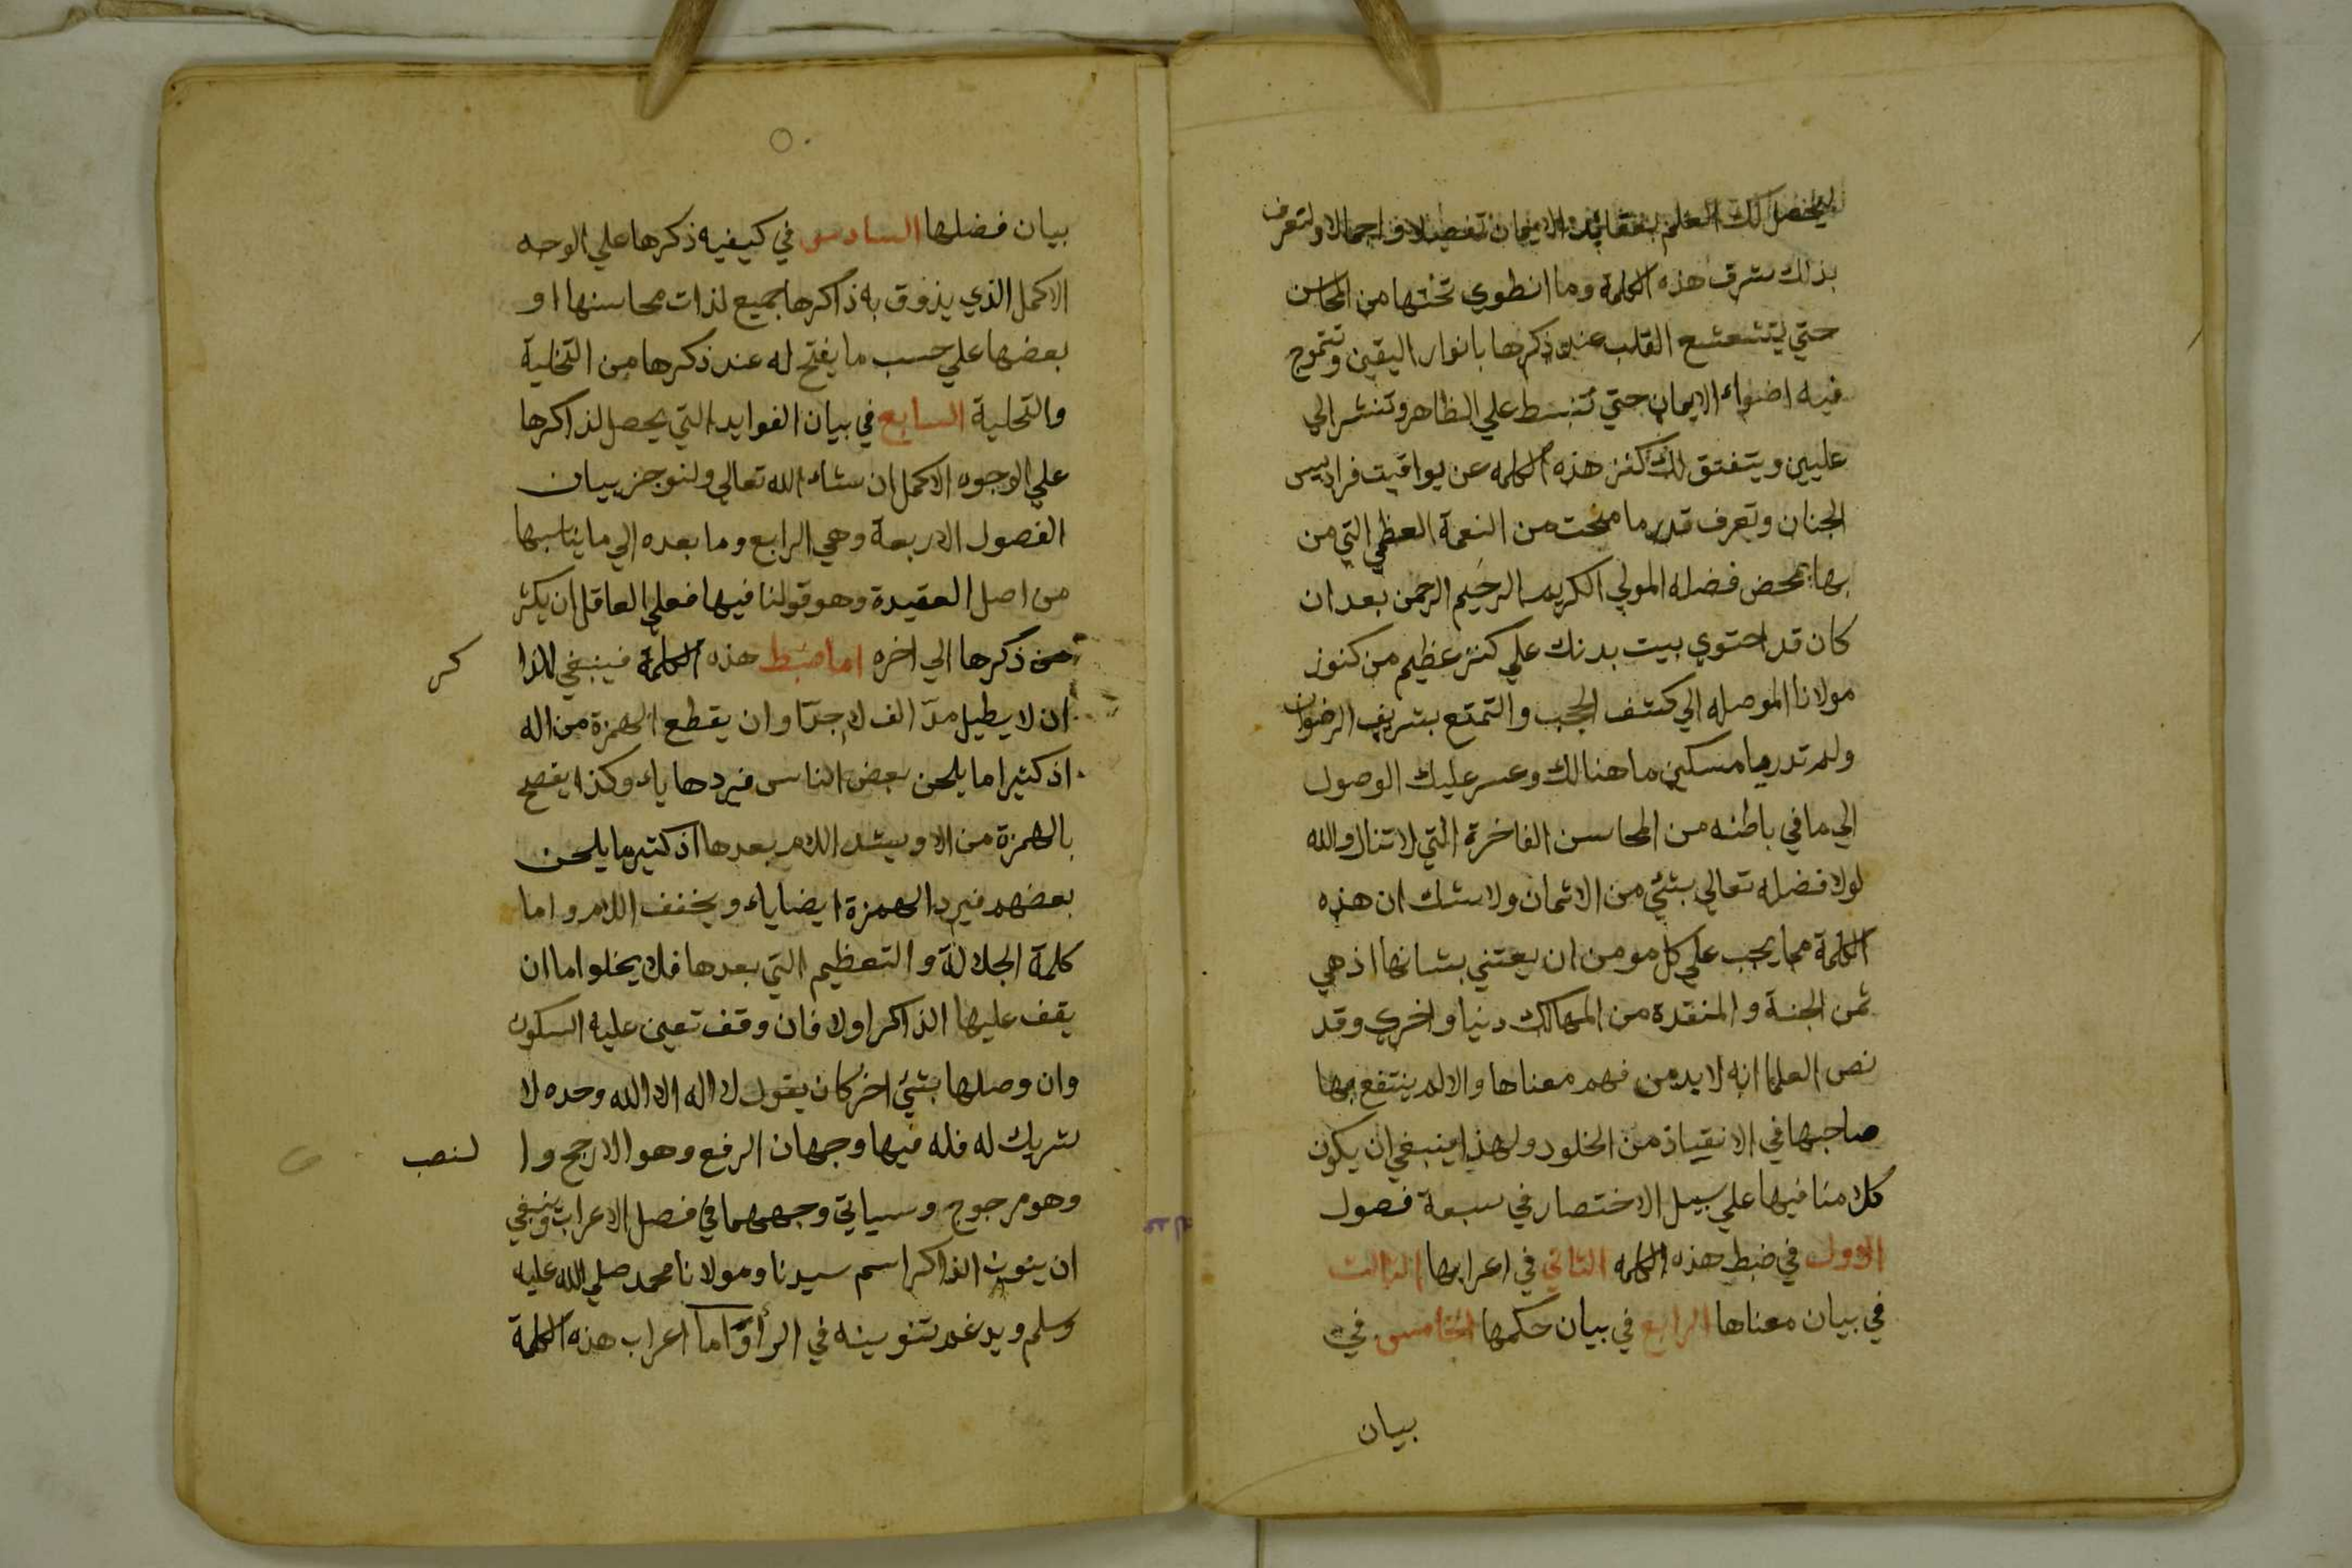 ليحصل لك العلم بعقائد الايمان تفصيلا واجمالا ولتعرف
بذلك شرف هذه الكلمة وما انطوي تحتها من المحاسن
حتي يتشعشع القلب عند ذكرها بانوار اليقين وتتموج
فيه اضواء الايمان حتي تنبسط علي الظاهر وتنشر الي
عليين ويتفتق لك كنز هذه الكلمه عن يواقيت فراديس
الجنان وتعرف قدر ما منحت من النعمة العظمي التي من
بها بمحض فضله المولي الكريم الرحيم الرحمن بعد ان
كان قد احتوي بيت بدنك علي كنز عظيم من كنوز
مولانا الموصله الي كشف الحجب والتمتع بشريف الرضوان
ولم تدر يا مسكين ما هنالك وعسر عليك الوصول
الي ما في باطنه من المحاسن الفاخرة التي لا تنال والله
لولا فضله تعالي بشئ من الاثمان ولا شك ان هذه
الكلمة مما يجب علي كل مومن ان يعتني بشانها اذ هي
ثمن الجنة والمنقدة من المهالك دنيا واخري وقد
نص العلما انه لا بد من فهم معناها والا لم ينتفع بها
صاحبها في الانقياذ من الخلود ولهذا ينبغي ان يكون
كلامنا فيها علي سبيل الاختصار في سبعة فصول
الاول في ضبط هذه الكلمه الثاني في اعرابها الثالث
في بيان معناها الرابع في بيان حكمها الخامس في
بيان
بيان فضلها السادس في كيفيه ذكرها علي الوجه
الاكمل الذي يذوق به ذاكرها جميع لذات محاسنها او
بعضها علي حسب ما يفتح له عند ذكرها من التخلية
والتحلية السابع في بيان الفوايد التي يحصل لذاكرها
علي الوجوه الاكمل ان شاء الله تعالي ولنوجز بيان
الفصول الاربعة وهي الرابع وما بعده الي ما يناسبها
من اصل العقيدة وهو قولنا فيها فعلي العاقل ان يكثر
من ذكرها الي اخره اما ضبط هذه الكلمة فينبغي للذا كر
ان لا يطيل مدّ الف لا جدّا وان يقطع الهمزة من اله
اذ كثيرا ما يلحن بعض الناس فيردها ياء وكذا يفصح
بالهمزة من الا ويشد اللام بعدها اذ كثير ما يلحن
بعضهم فيرد الهمزة ايضا ياء ويخفف اللام واما
كلمة الجلالة والتعظيم التي بعدها فلا يخلوا اما ان
يقف عليها الذاكر اولا فان وقف تعين عليه السكون
وان وصلها بشئ اخر كان يقول لا اله الا الله وحده لا
شريك له فله فيها وجهان الرفع وهو الارجح وا لنصب
وهو مرجوح وسياتي وجههما في فصل الاعراب وينبغي
ان ينون الذاكر اسم سيدنا ومولانا محمد صلي الله عليه
وسلم ويدغم تنوينه في الرأ وَّاما اعراب هذه الكلمة